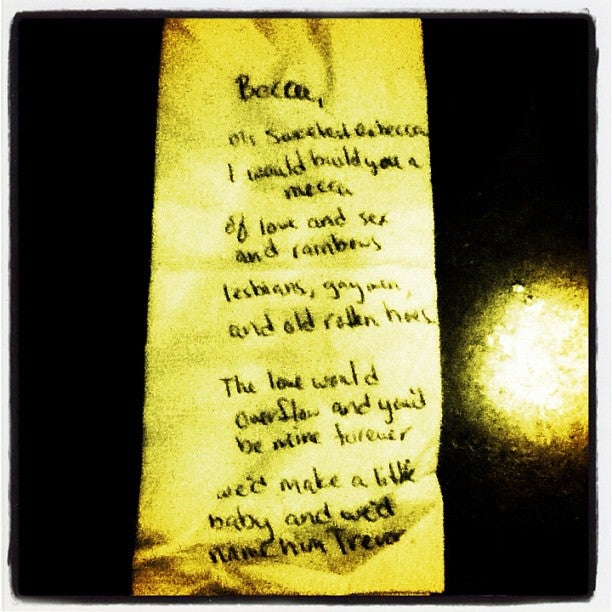 Becca,
Oh Sweetest Rebecca
I would build you a
mecca
of love and sex
and rainbows
lesbians, gay men,
and old rotten hoes.
The love would
overflow and you'd
be mine forever
we'd make a little
baby and we'd
name him Trevor